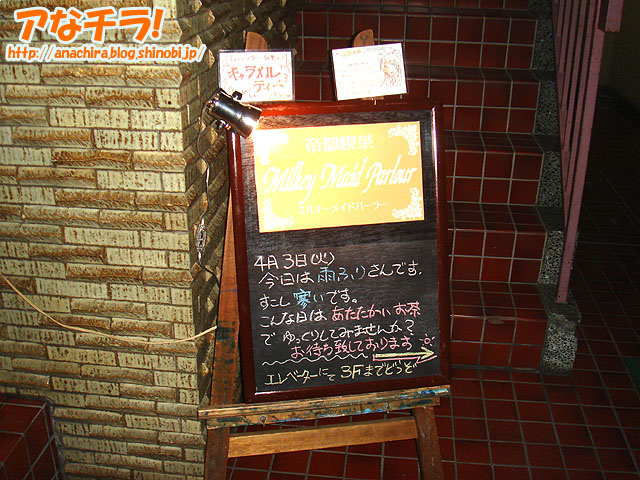 アなチラ!
http://anachira.blog.shinobi.jp/
キャラメル
ティー
帝都喫茶
Milkey Maid Parlour
ミルキーメイドパーラー
4月3日(火)
今日は雨ふりさんです。
すこし寒いです。
こんな日はあたたかいお茶
でゆっくりしてみませんか?
お待ち致しております
エレベーターにて3Fまでどうぞ